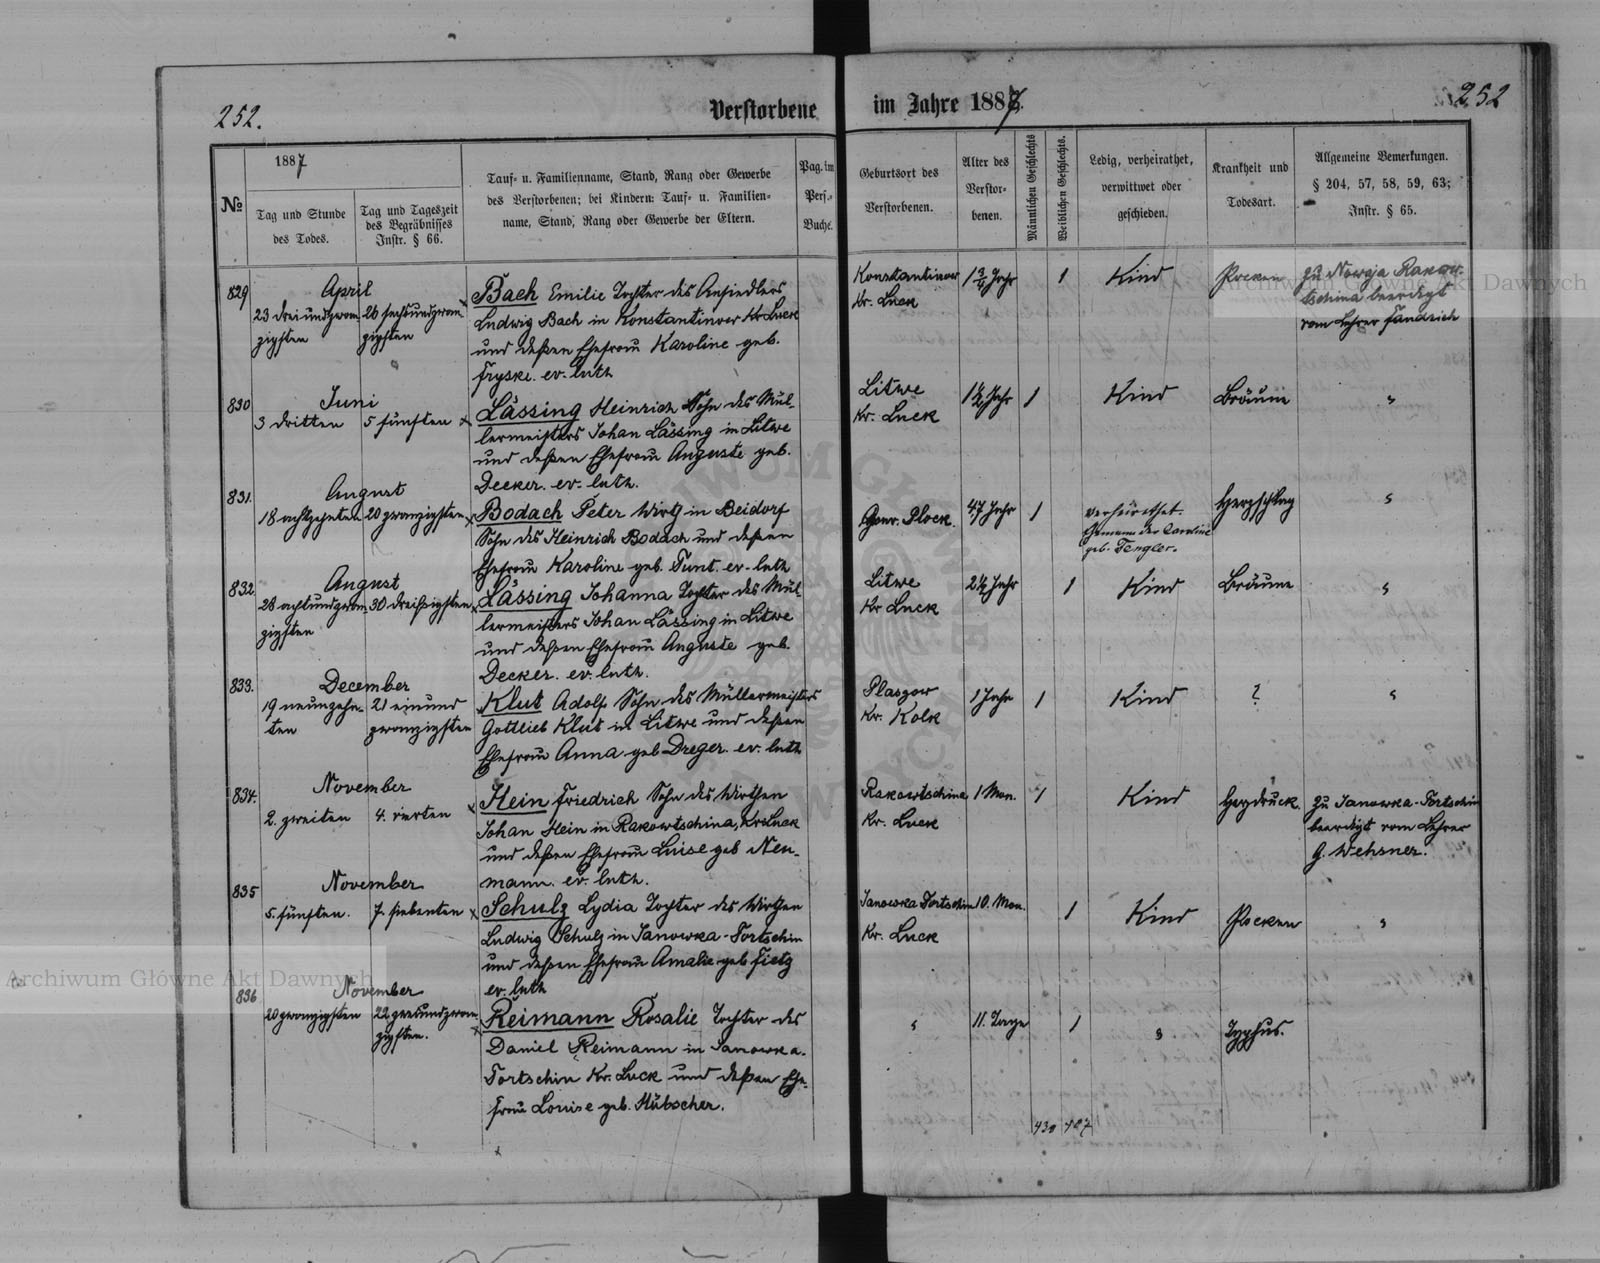 252.
Verstorbene im Jahre 1887.
252
№
1887
Tag und Stunde
des Todes.
Tag und Tageszeit
des Begräbnisses
Instr. § 66.
Tauf- u. Familienname, Stand, Rang oder Gewerbe
des Verstorbenen; bei Kindern: Tauf- u. Familien-
name, Stand, Rang oder Gewerbe der Eltern.
Pag. im
Pers.-
Buche.
Geburtsort des
Verstorbenen.
Alter des
Verstor-
benen.
Männlichen Geschlechts
Weiblichen Geschlechts.
Ledig, verheirathet,
verwittwet oder
geschieden.
Krankheit und
Todesart.
Allgemeine Bemerkungen.
§ 204, 57, 58, 59, 63;
Instr. § 65.
829
April
23 dreiundzwan-
zigsten
26 sechsundzwan-
zigsten
Bach Emilie Tochter des Ansiedlers
Ludwig Bach in Konstantinow Kr. Luck
und deßen Ehefrau Karoline geb.
Fryske. ev. luth
Konstantinow
Kr. Luck
1 3/4 Jahr
1
Kind
Pocken
Zu Nowaja Rakow-
tschina beerdigt
vom Lehrer Fandrich
830
Juni
3 dritten
5 fünften
Lässing Heinrich Sohn des Mül-
lermeisters Johan Lässing in Litwe
und deßen Ehefrau Auguste geb.
Decker. ev. luth.
Litwe
Kr. Luck
1
Kind
Bräune
"
831.
August
18 achtzehnten
20 zwanzigsten
Bodach Peter Wirth in Beidorf
Sohn des Heinrich Bodach und deßen
Ehefrau Karoline geb. Tunt. ev. luth
Gouv. Plock.
47 Jahr
1
verheirathet.
Gemann der Caroline
geb. Tengler.
Herzschlag
"
832.
August
28 achtundzwan-
zigsten
30 dreißigsten
Lässing Johanna Tochter des Mül-
lermeisters Johan Lässing in Litwe
und deßen Ehefrau Auguste geb.
Decker. ev. luth.
Litwe
Kr Luck
2 1/2 Jahr
1
Kind
Bräune
"
833.
December
19 neunzehn-
ten
21 einund
zwanzigsten
Klut Adolf Sohn des Müllermeisters
Gottlieb Klut in Litwe und deßen
Ehefrau Anna geb Dreger. ev. luth
Plasgow
Kr. Kolk
1 Jahr
1
Kind
?
"
834.
November
2. zweiten
4. vierten
Hein Friedrich Sohn des Wirthen
Johan Hein in Rakowtschina, Kr. Luck
und deßen Ehefrau Luise geb Neu-
mann. ev. luth.
Rakowtschina
Kr. Luck
1 Mon.
1
Kind
Herzdruck.
Zu Janowka-Tortschin
beerdigt vom Lehrer
G. Wehsner.
835
November
5. fünften.
7. siebenten
Schulz Lydia Tochter des Wirthen
Ludwig Schulz in Janowka-Tortschin
und deßen Ehefrau Amalie geb Fietz
ev. luth
Janowka Tortschin
Kr. Luck
10. Mon.
1
Kind
Pocken
"
836
November
20 zwanzigsten
22 zweiundzwan-
zigsten.
Reimann Rosalie Tochter des
Daniel Reimann in Janowka.
Tortschin Kr. Luck und deßen Ehe-
frau Louise geb. Hübscher.
"
11. Tage
1
"
Typhus.
430 407
Archiwum Główne Akt Dawnych
Archiwum Główne Akt Dawnych